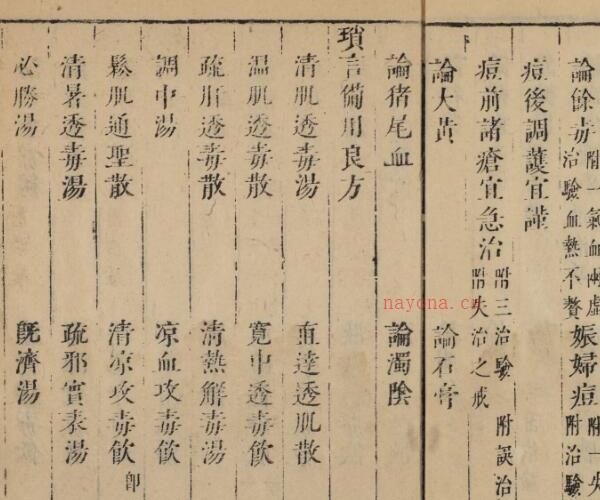 論餘毒 附一氣血兩虛 治驗血熱不贅 娠婦痘 附一失 附治驗
痘後調護宜謹
痘前諸瘡宜急治 附三治驗 附誤治 附失治之戒
論大黃 論石膏
論猪尾血 論濁陰
瑣言備用良方
清肌透毒湯 直達透肌散
温肌透毒散 寛中透毒飲
疏肝透毒散 清熱解毒湯
調中湯 凉血攻毒飲
鬆肌通聖散 清凉攻毒飲 卽
清暑透毒湯 疏邪實表湯
必勝湯 旣濟湯
nayona.cn